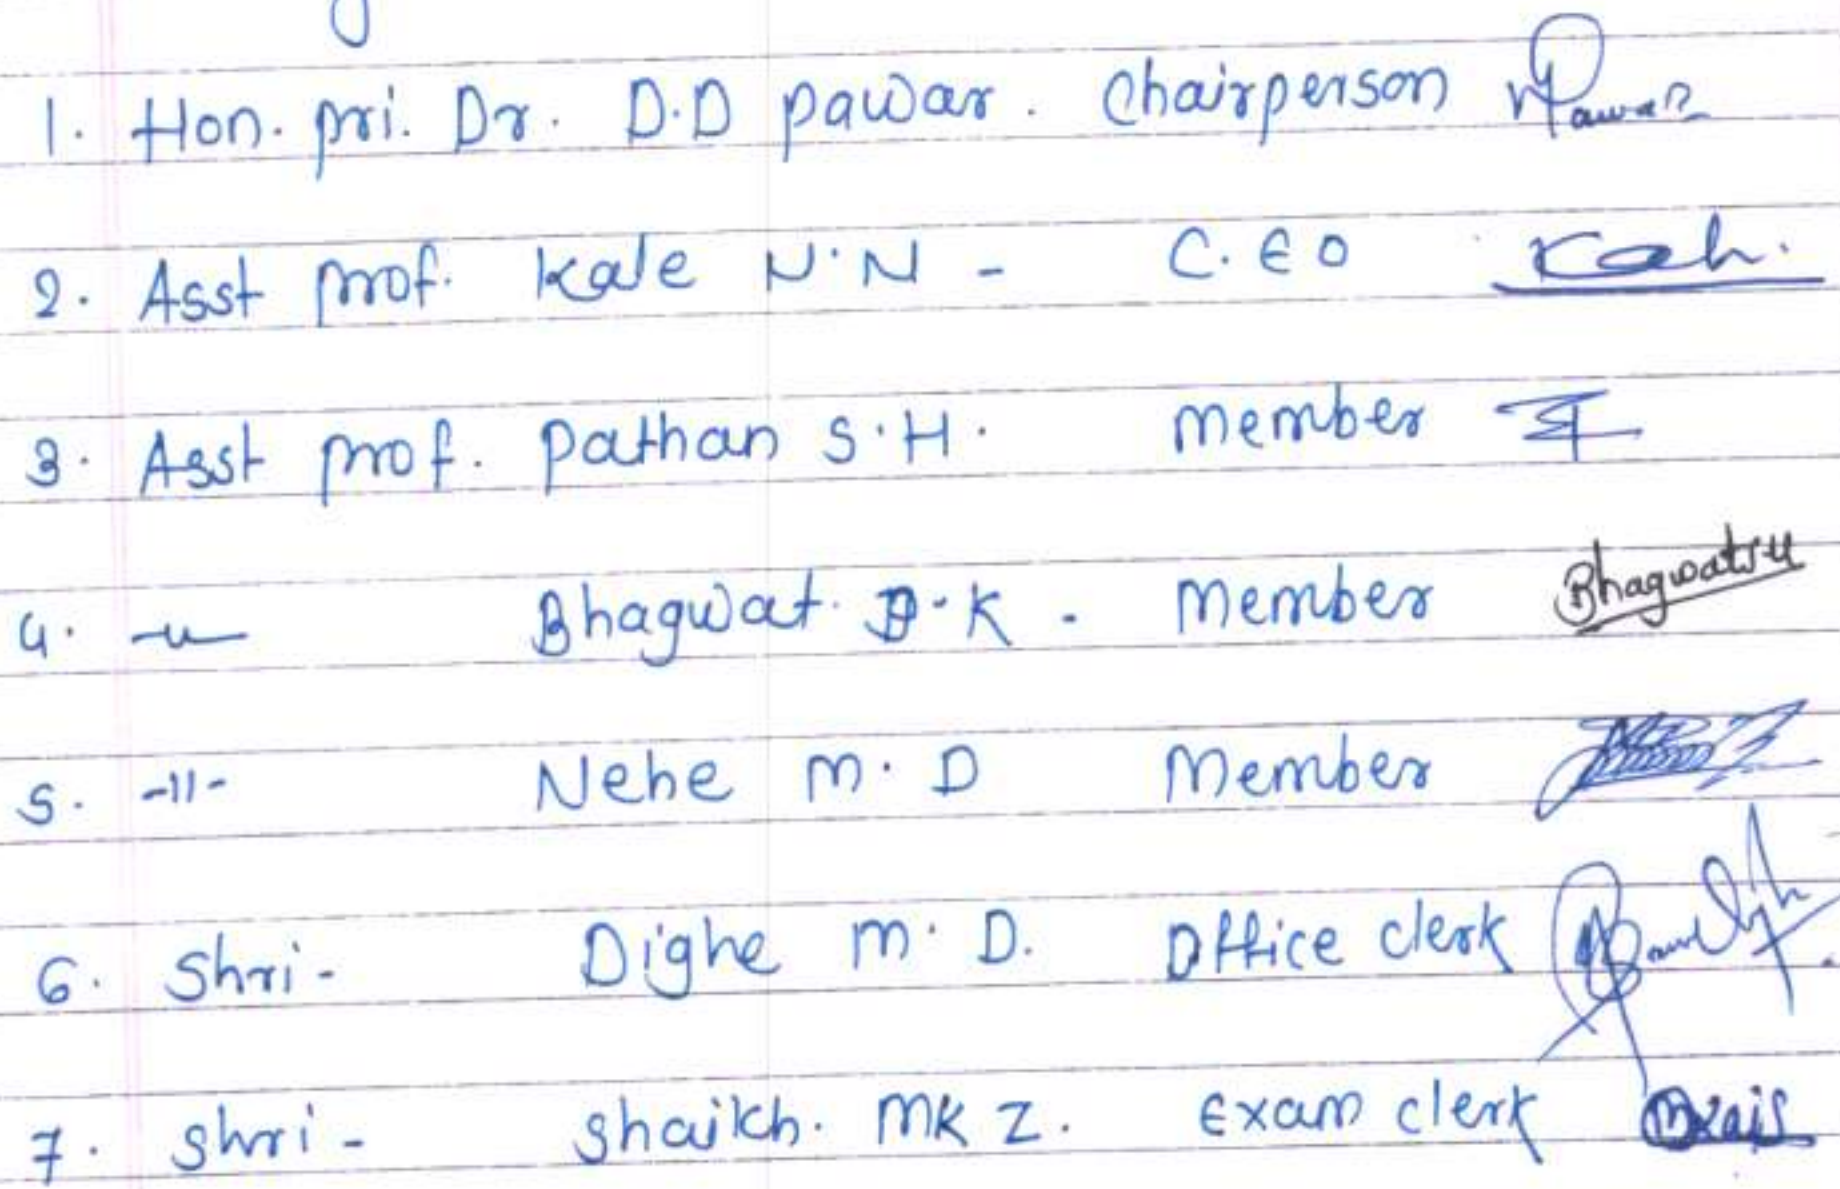 1. Hon. pri. Dr. D.D pawar. Chairperson Pawar
2. Asst prof. Kale N.N - C.E O Kale.
3. Asst prof. Pathan S.H. Member
4. -"- Bhagwat. D.K. Member
5. -11- Nehe M.D Member
6. Shri- Dighe M.D. Office clerk
7. Shri- Shaikh. MK Z. Exam clerk